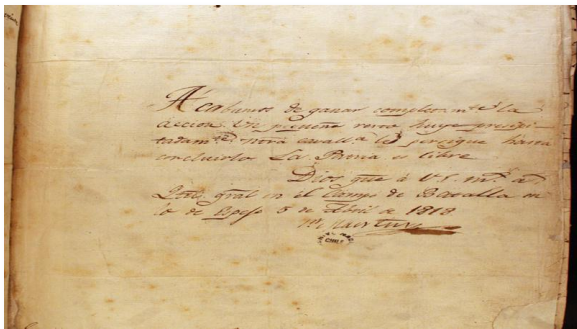 Acabamos de ganar completamte la
accion Un pequeño resto huye precipi-
tadamte nora cavalla lo persigue hasta
concluirlo La Patria es libre
Dios gue à V.S. ms as
gral en el Campo de Batalla en
lo de Espejo 5 de Abril de 1818
Martin
CHILE